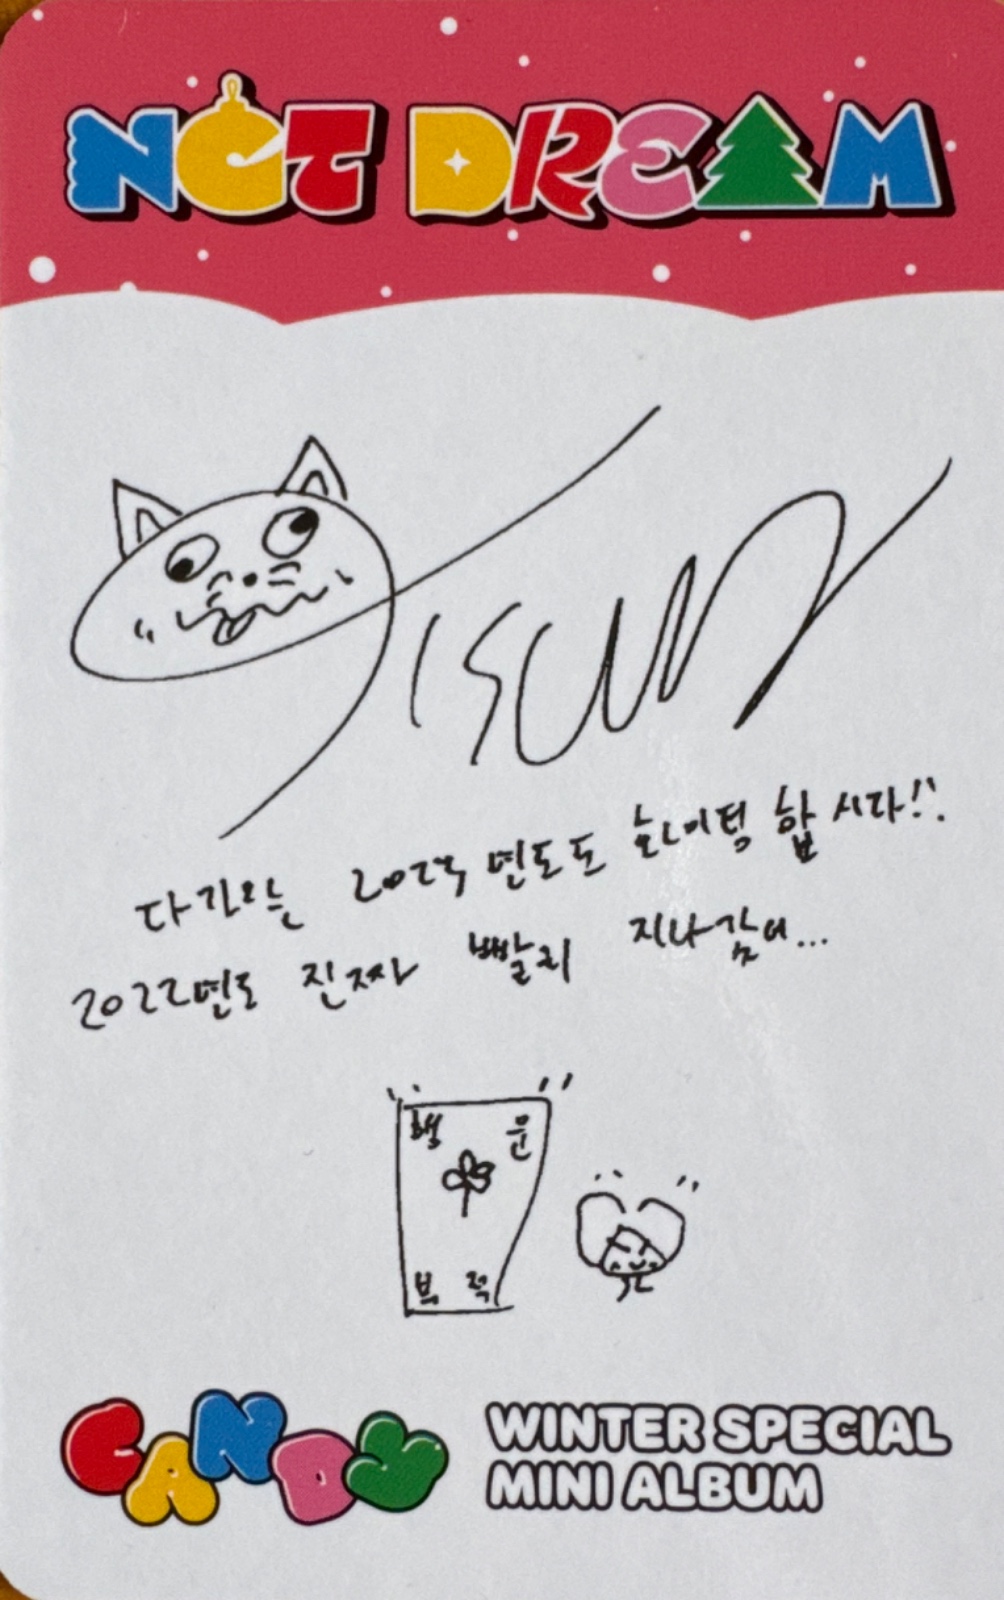 NCT DREAM
JISUNG
다가오는 2023년도도 화이팅 합시다!!
2022년도 진짜 빨리 지나갔어...
행 운
부 적
CANDY
WINTER SPECIAL
MINI ALBUM